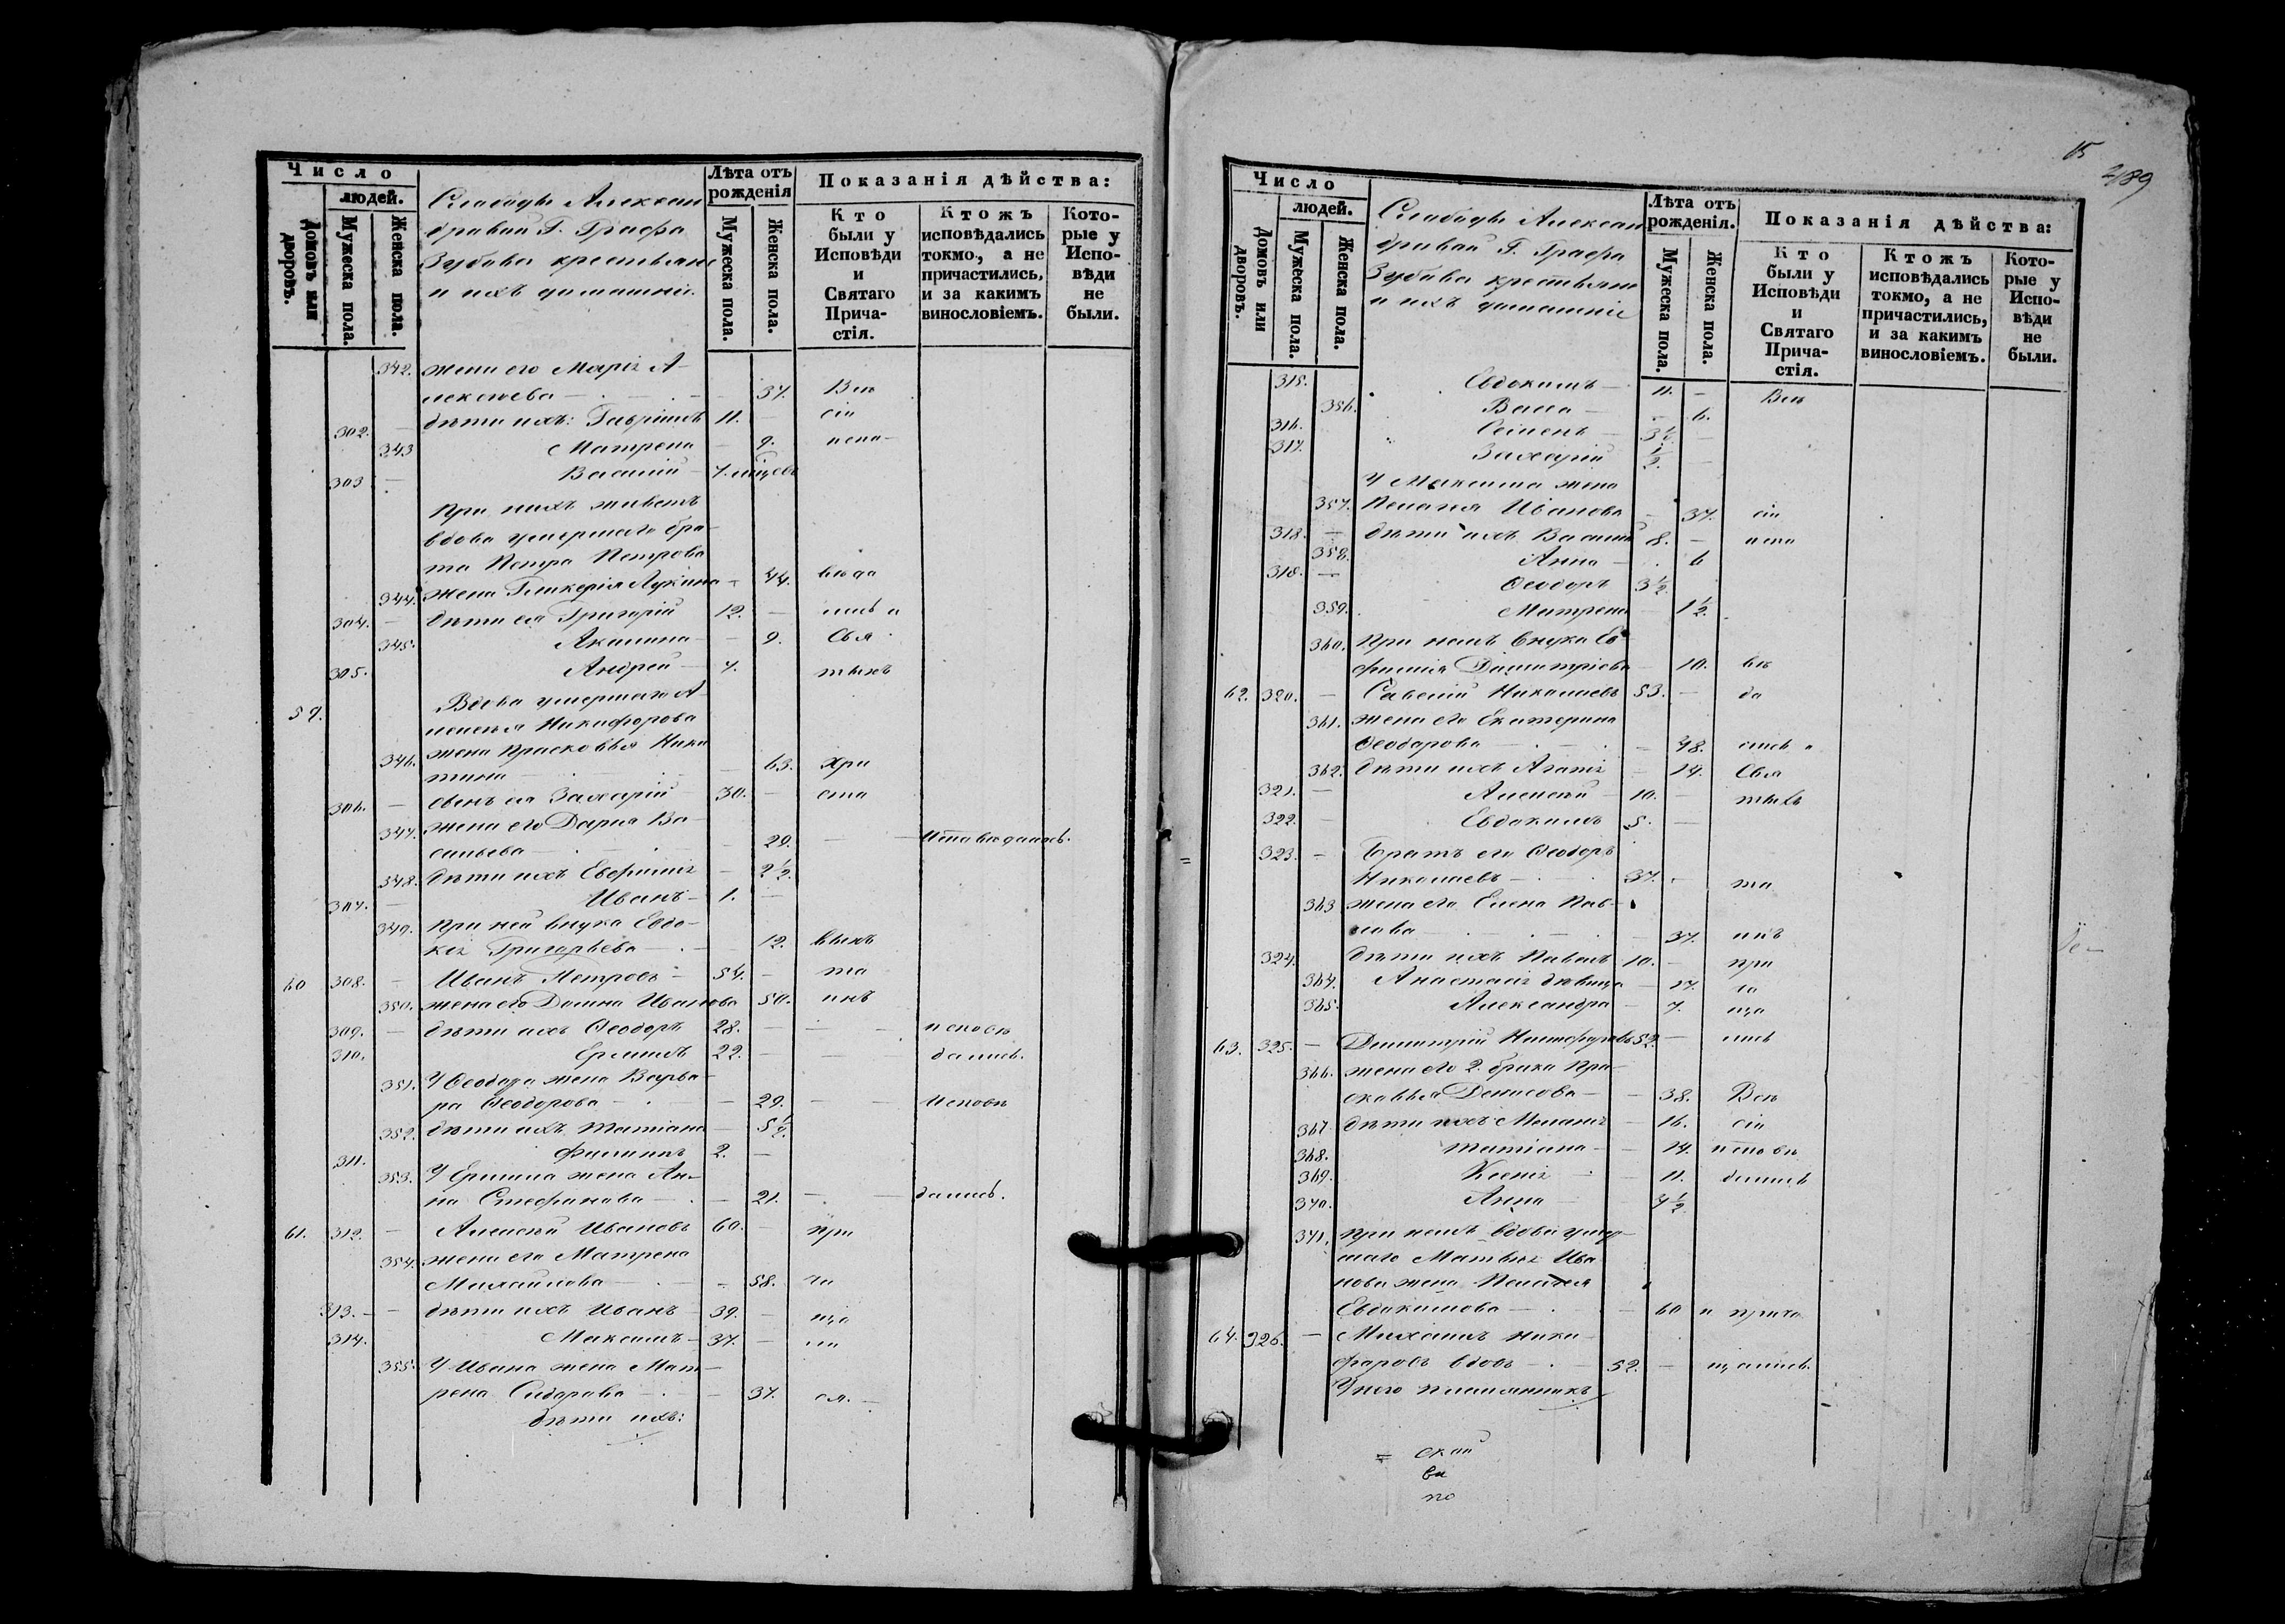 Число
людей.
Домовъ или дворовъ.
Мужеска пола.
Женска пола.
Слободы Алексан
дровой Г. Графа
Зубова крестьяне
и ихъ домашніе.
Лѣта отъ рожденія
Мужеска пола.
Женска пола.
Показанія дѣйства:
Кто были у Исповѣди и Святаго Прича-стія.
Ктожъ исповѣдались токмо, а не причастились, и за какимъ винословіемъ.
Кото-рые у Испо-вѣди не были.
342. жена его Марія А-
лексѣева — 37. Всѣ
302. — дѣти ихъ: Гавріилъ 11. сіи
343 Матрена — 9. испо-
303 — Василій — 7. мѣсяцевъ
При нихъ живетъ
вдова умершаго бра-
та Петра Петрова
344. жена Гликерія Лукина — 44. вѣда
304. — дѣти ея Григорій 12. — лись и
345. Акилина — 9. Свя
305. Андрей — 7. тыхъ
59. Вдова умершаго А-
лексѣя Никифорова
346. жена Прасковья Ники
тина — 63. Хри
306. — сынъ ея Захарій — 30. — сто
347. жена его Дарья Ва-
сильева — 29. — Исповѣдались.
348. дѣти ихъ Евфимія — 2 1/2.
307. — Иванъ — 1. —
349. при ней внука Евдо-
кія Григорьева — 12. выхъ
60 308. — Иванъ Петровъ — 54. — та
350. жена его Домна Иванова 50. инъ
309. — дѣти ихъ Ѳеодоръ 28. — исповѣ
310. Ермилъ 22. — дались.
351. У Ѳеодора жена Варва-
ра Ѳеодорова — 29. — исповѣ
352. дѣти ихъ Татіана — 5 1/2.
311. Филиппъ 2. —
353. У Ермила жена Ан-
на Стефанова — 21. — дались.
61. 312. — Алексѣй Ивановъ 60. — при
354. жена его Матрена
Михайлова — 58. ча
313. — дѣти ихъ Иванъ — 39. — ща
314. Максимъ — 37. — ли
355. У Ивана жена Мат-
рена Сидорова — 37. ся. —
дѣти ихъ:
15
489
Число
людей.
Домовъ или дворовъ.
Мужеска пола.
Женска пола.
Слободы Алексан
дровой Г. Графа
Зубова крестьяне
и ихъ домашніе
Лѣта отъ рожденія.
Мужеска пола.
Женска пола.
Показанія дѣйства:
Кто были у Исповѣди и Святаго Прича-стія.
Ктожъ исповѣдались токмо, а не причастились, и за какимъ винословіемъ.
Кото-рые у Испо-вѣди не были.
315. Евдокимъ — 11. — Всѣ
356. Васса — 6.
316. Семенъ — 3 1/2. —
317. Захарій 1/2. —
У Максима жена
357. Пелагея Иванова — 37. сіи
318. — дѣти ихъ Василій 8. — испо
358. Анна — 6
318. — Ѳеодоръ 3 1/2.
359. Матрена — 1 1/2.
360. при немъ внука Ев-
фимія Димитріева — 10. вѣ
62. 320. — Савелій Николаевъ 53. — да
361. жена его Екатерина
Ѳеодорова — 48. лись и
362. дѣти ихъ Агафія — 14. Свя
321. — Алексѣй — 10. — тыхъ
322. — Евдокимъ 5. —
323. — братъ его Ѳеодоръ
Николаевъ — 37. — та
363 жена его Елена Пав-
лова — 37. инъ
324. дѣти ихъ Павелъ 10. — при
364. Анастасія дѣвица — 17. ча
365. Александра — 7. ща
63. 325. — Димитрій Никифоровъ 52. — лись
366. жена его 2. брака Пра-
сковья Денисова — 38. Всѣ
367 дѣти ихъ Меланія — 16. сіи
368. Татіана — 14. исповѣ
369. Ксенія — 11. дались
370. Анна — 4 1/2.
371. при немъ вдова умер-
шаго Матвѣя Ива
нова жена Пелагея
Евдокимова — 60 и прича
64. 326. — Михаилъ Ники
форовъ вдовъ — 52. — щались.
У него племянникъ